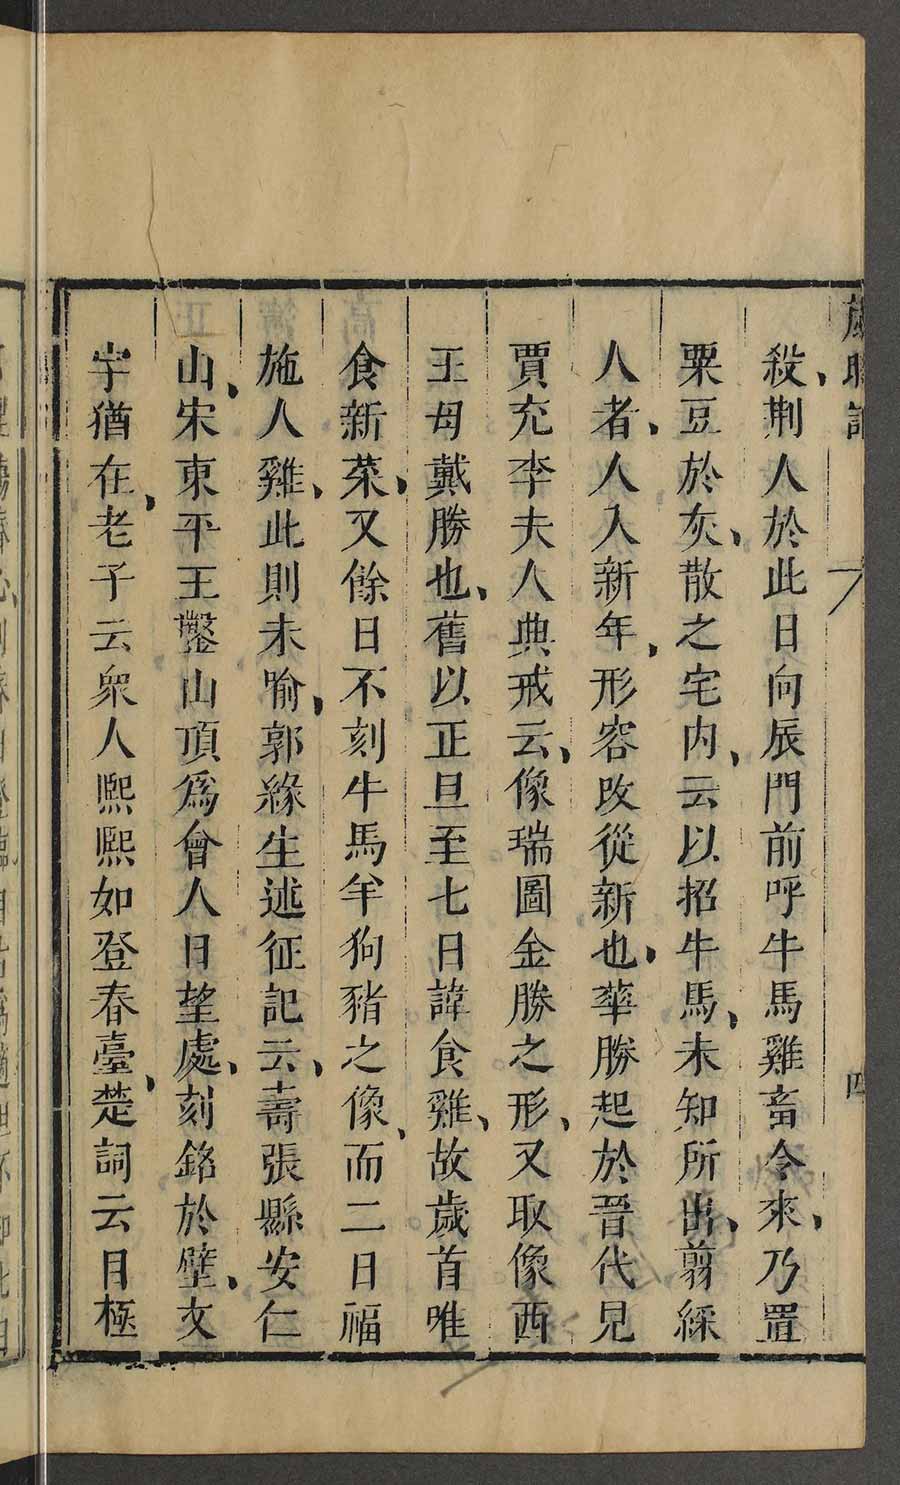 殺荆人於此日向辰門前呼牛馬雞畜令來乃置
粟豆於灰散之宅内云以招牛馬未知所出剪綵
人者人入新年形容改從新也華勝起於晉代見
賈充李夫人典戒云像瑞圖金勝之形又取像西
王母戴勝也舊以正旦至七日諱食雞故歲首唯
食新菜又餘日不刻牛馬羊狗豬之像而二日福
施人雞此則未喻郭緣生述征記云壽張縣安仁
山宋東平王鑿山頂爲會人日望處刻銘於壁文
宇猶在老子云衆人熙熙如登春臺楚詞云目極